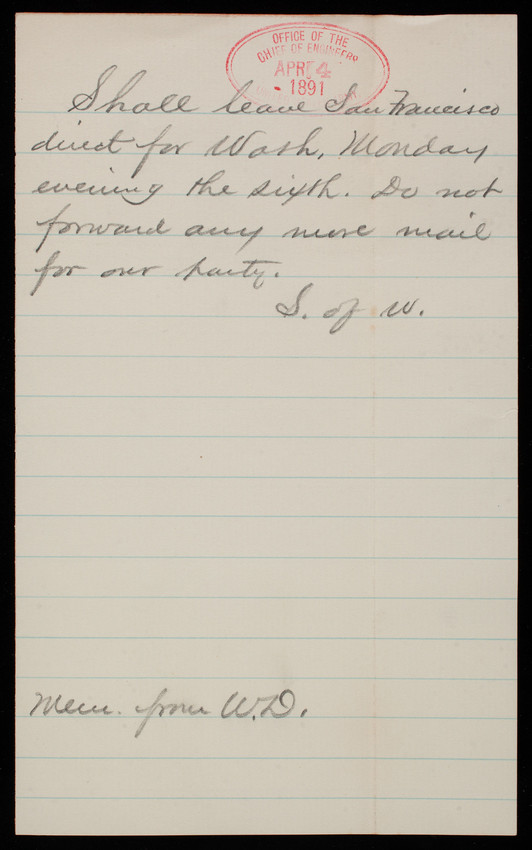 OFFICE OF THE
CHIEF OF ENGINEERS
APR 4
1891
Shall leave San Francisco
direct for Wash, Monday
evening the sixth. Do not
forward any more mail
for our party.
S. of W.
Mem. from W.D.